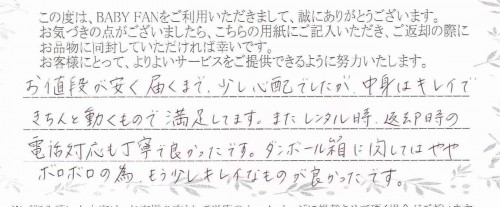 この度は、BABY FANをご利用いただきまして、誠にありがとうございます。
お気づきの点がございましたら、こちらの用紙にご記入いただき、ご返却の際に
お品物に同封していただければ幸いです。
お客様にとって、よりよいサービスをご提供できるように努力いたします。
お値段が安く届くまで、少し心配でしたが、中身はキレイで
きちんと動くもので満足してます。またレンタル時、返却時の
電話対応も丁寧で良かったです。ダンボール箱に関してはやや
ボロボロの為、もう少しキレイなものが良かったです。